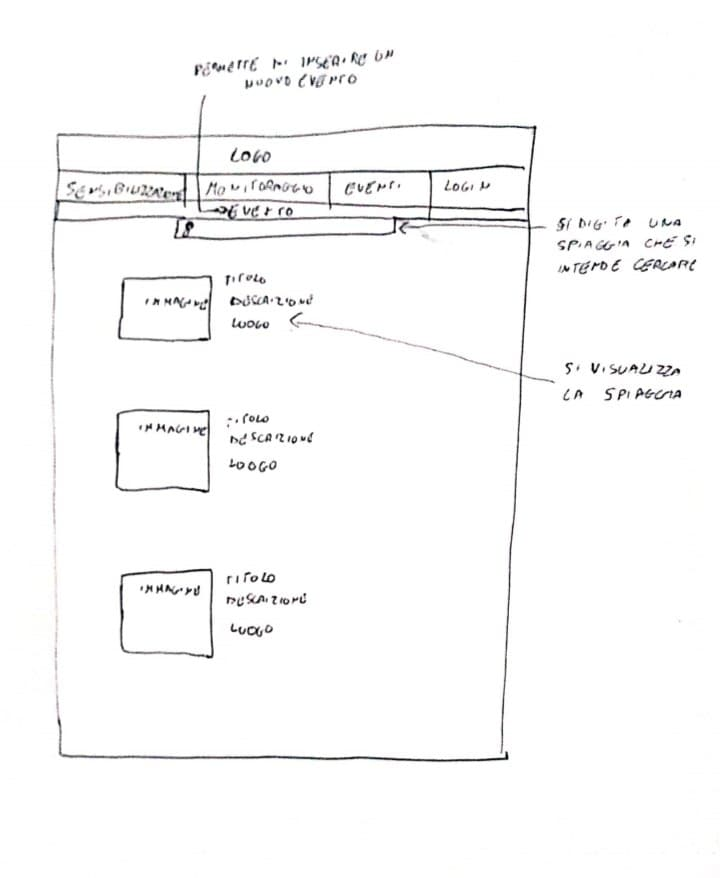 PERMETTE DI INSERIRE UN
NUOVO EVENTO
LOGO
SENSIBILIZZAZIONE MONITORAGGIO EVENTI LOGIN
EVENTO
SI DIGITA UNA
SPIAGGIA CHE SI
INTENDE CERCARE
IMMAGINE
TITOLO
DESCRIZIONE
LUOGO
SI VISUALIZZA
LA SPIAGGIA
IMMAGINE
TITOLO
DESCRIZIONE
LUOGO
IMMAGINE
TITOLO
DESCRIZIONE
LUOGO